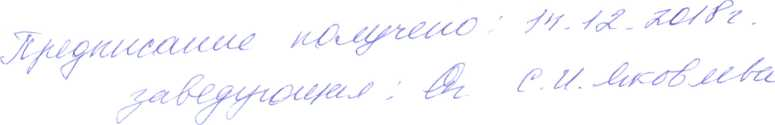 Предписание получено: 14.12.2018г.
заведующая: С.И. Яковлева